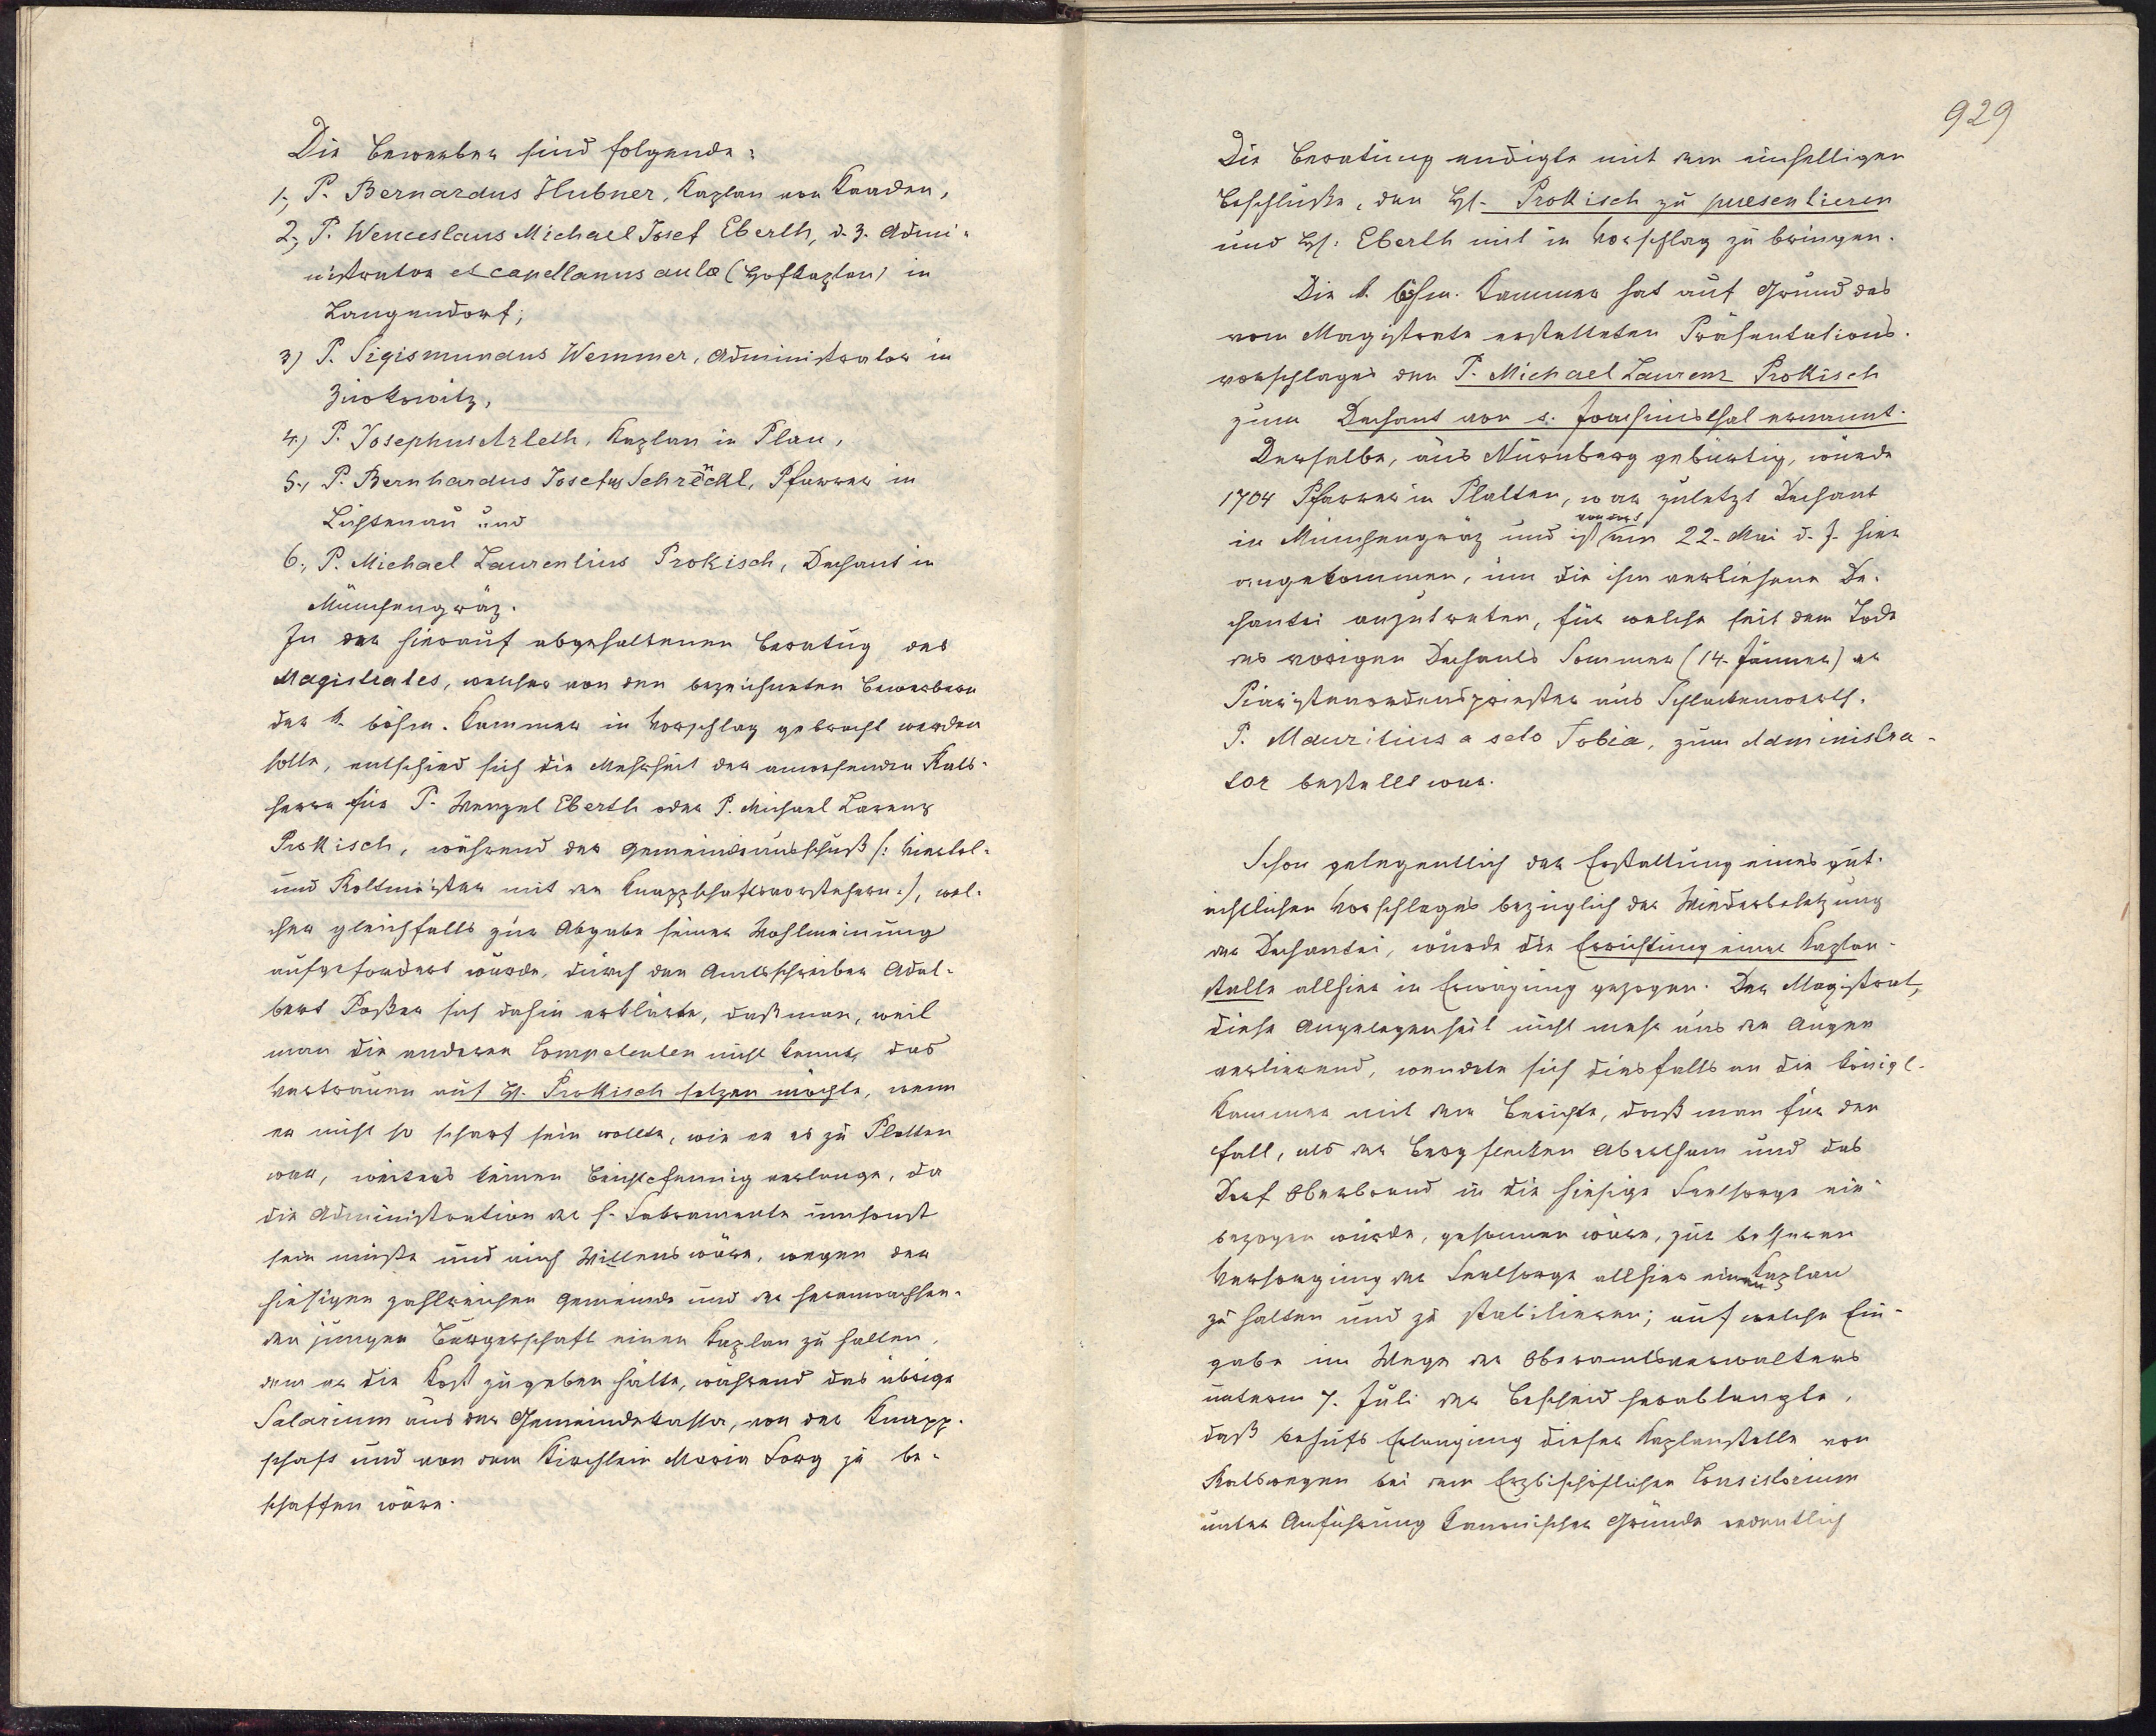 Die Bewerber sind folgende:
1., P. Bernardus Hubner, Kaplan von Kaaden,
2., P. Wenceslaus Michael Josef Eberth, d. Z. Admi-
nistrator et capellanus aulæ (Hofkaplan) in
Langendorf;
3) P. Sigismundus Wemmer, Administrator in
Zwokowitz,
4.) P. Josephus Arleth, Kaplan in Plan,
5., P. Bernhardus Josefus Schröckl, Pfarrer in
Lichtenau und
6., P. Michael Laurentius Prokisch, Dechant in
Münchengräz.
In der hierauf abgehaltenen Beratug des
Magistrates, welcher von den bezeichneten Bewerbern
der k. böhm. Kammer in Vorschlag gebracht werden
solle, entschied sich die Mehrheit der anwesenden Rats-
herrn für P. Wenzel Eberth oder P. Michael Lorenz
Prokisch, während der Gemeindeausschuß (: Viertel-
und Rottmeister mit den Knappschaftsvorstehern :), wel-
cher gleichfalls zur Abgabe seiner Wohlmeinung
aufgefordert wurde, durch den Amtsschreiber Adal-
bert Poßer sich dahin erklärte, daß man, weil
man die anderen Competenten nicht kennt, das
Vertrauen auf H. Prokisch setzen möchte, wenn
er nicht so scharf sein wollte, wie er es zu Platten
war, weiters keinen Beichtpfennig verlange, da
die Administration der h. Sakramente umsonst
sein müßte und auch Willens wäre, wegen der
hiesigen zahlreichen Gemeinde und der heranwachsen-
den jungen Bürgerschaft einen Kaplan zu halten,
dem er die Kost zu geben hätte, während das übrige
Salarium aus der Gemeindekassa, von der Knapp-
schaft und von dem Kirchlein Maria Sorg zu be-
schaffen wäre.
929
Die Beratung endigte mit dem einhelligen
Beschluße, den H. Prokisch zu præsentieren
und H. Eberth mit in Vorschlag zu bringen.
Die k. böhm. Kammer hat auf Grund des
vom Magistrate erstatteten Präsentations-
vorschlages den P. Michael Laurenz Prokisch
zum Dechant von s. Joachimsthal ernannt.
Derselbe, aus Nürnberg gebürtig, wurde
1704 Pfarrer in Platten, war zuletzt Dechant
in Münchengräz und ist am 22. Mai d. J. hier
angekommen, um die ihm verliehene De-
chantei anzutreten, für welche seit dem Tode
des vorigen Dechants Sommer (14. Jänner) er
Piaristenordenspriester aus Schlackenwerth,
P. Mauritius a scto Tobia, zum Administra-
tor bestellt war.
Schon gelegentlich der Erstattung eines gut-
achtlichen Vorschlages bezüglich der Wiederbesetzung
der Dechantei, wurde die Errichtung einer Kaplan-
stelle allhier in Erwägung gezogen. Der Magistrat,
diese Angelegenheit nicht mehr aus den Augen
verlierend, wendete sich diesfalls an die königl.
Kammer mit dem Berichte, daß man für den
Fall, als der Bergflecken Abertham und das
Dorf Oberbrand in die hiesige Seelsorge ein-
bezogen würde, gesonnen wäre, zur besseren
Versorgung der Seelsorge allhier einen Kaplan
zu halten und zu stabilieren; auf welche Ein-
gabe im Wege des Oberamtsverwalters
unterm 7. Juli der Bescheid herablangte,
daß behufs Erlangung dieser Kaplanstelle von
Ratswegen bei dem Erzbischöflichen Consistorium
unter Anführung kanonischer Gründe ordentlich